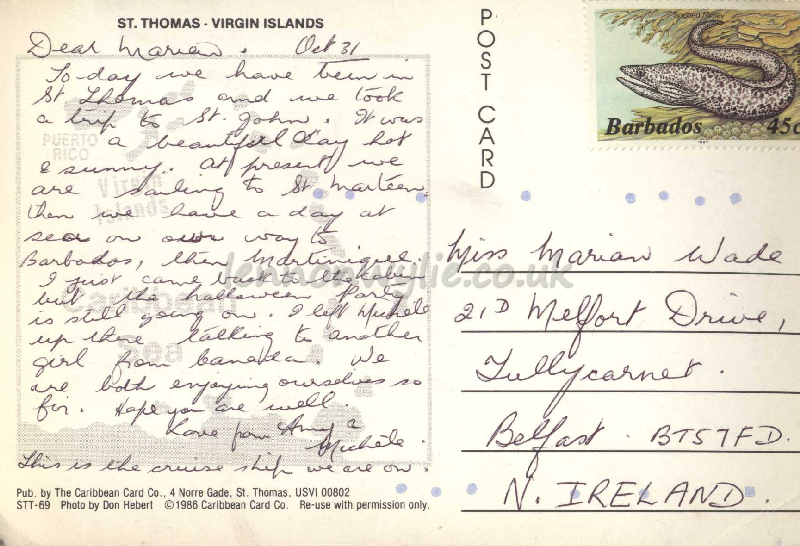 ST. THOMAS - VIRGIN ISLANDS
Dear Marian. Oct 31
To-day we have been in
St Thomas and we took
a trip to St. John. It was
a beautiful day hot
& sunny. At present we
are sailing to St Marteen.
then we have a day at
sea on our way to
Barbados, then Martinique.
I just came back to the cabin
but the halloween party
is still going on. I left Michele
up there talking to another
girl from Canada. We
are both enjoying ourselves so
far. Hope you are well.
Love from Amy &
Michele.
This is the cruise ship we are on.
PUERTO
RICO
Virgin
Islands
Caribbean
Sea
Pub. by The Caribbean Card Co., 4 Norre Gade, St. Thomas, USVI 00802
STT-69 Photo by Don Hebert ©1986 Caribbean Card Co. Re-use with permission only.
POST CARD
Spotted Moray
Barbados 45c
Miss Marian Wade
21D Melfort Drive,
Tullycarnet.
Belfast. BT57FD.
N. IRELAND.
lennonwylie.co.uk